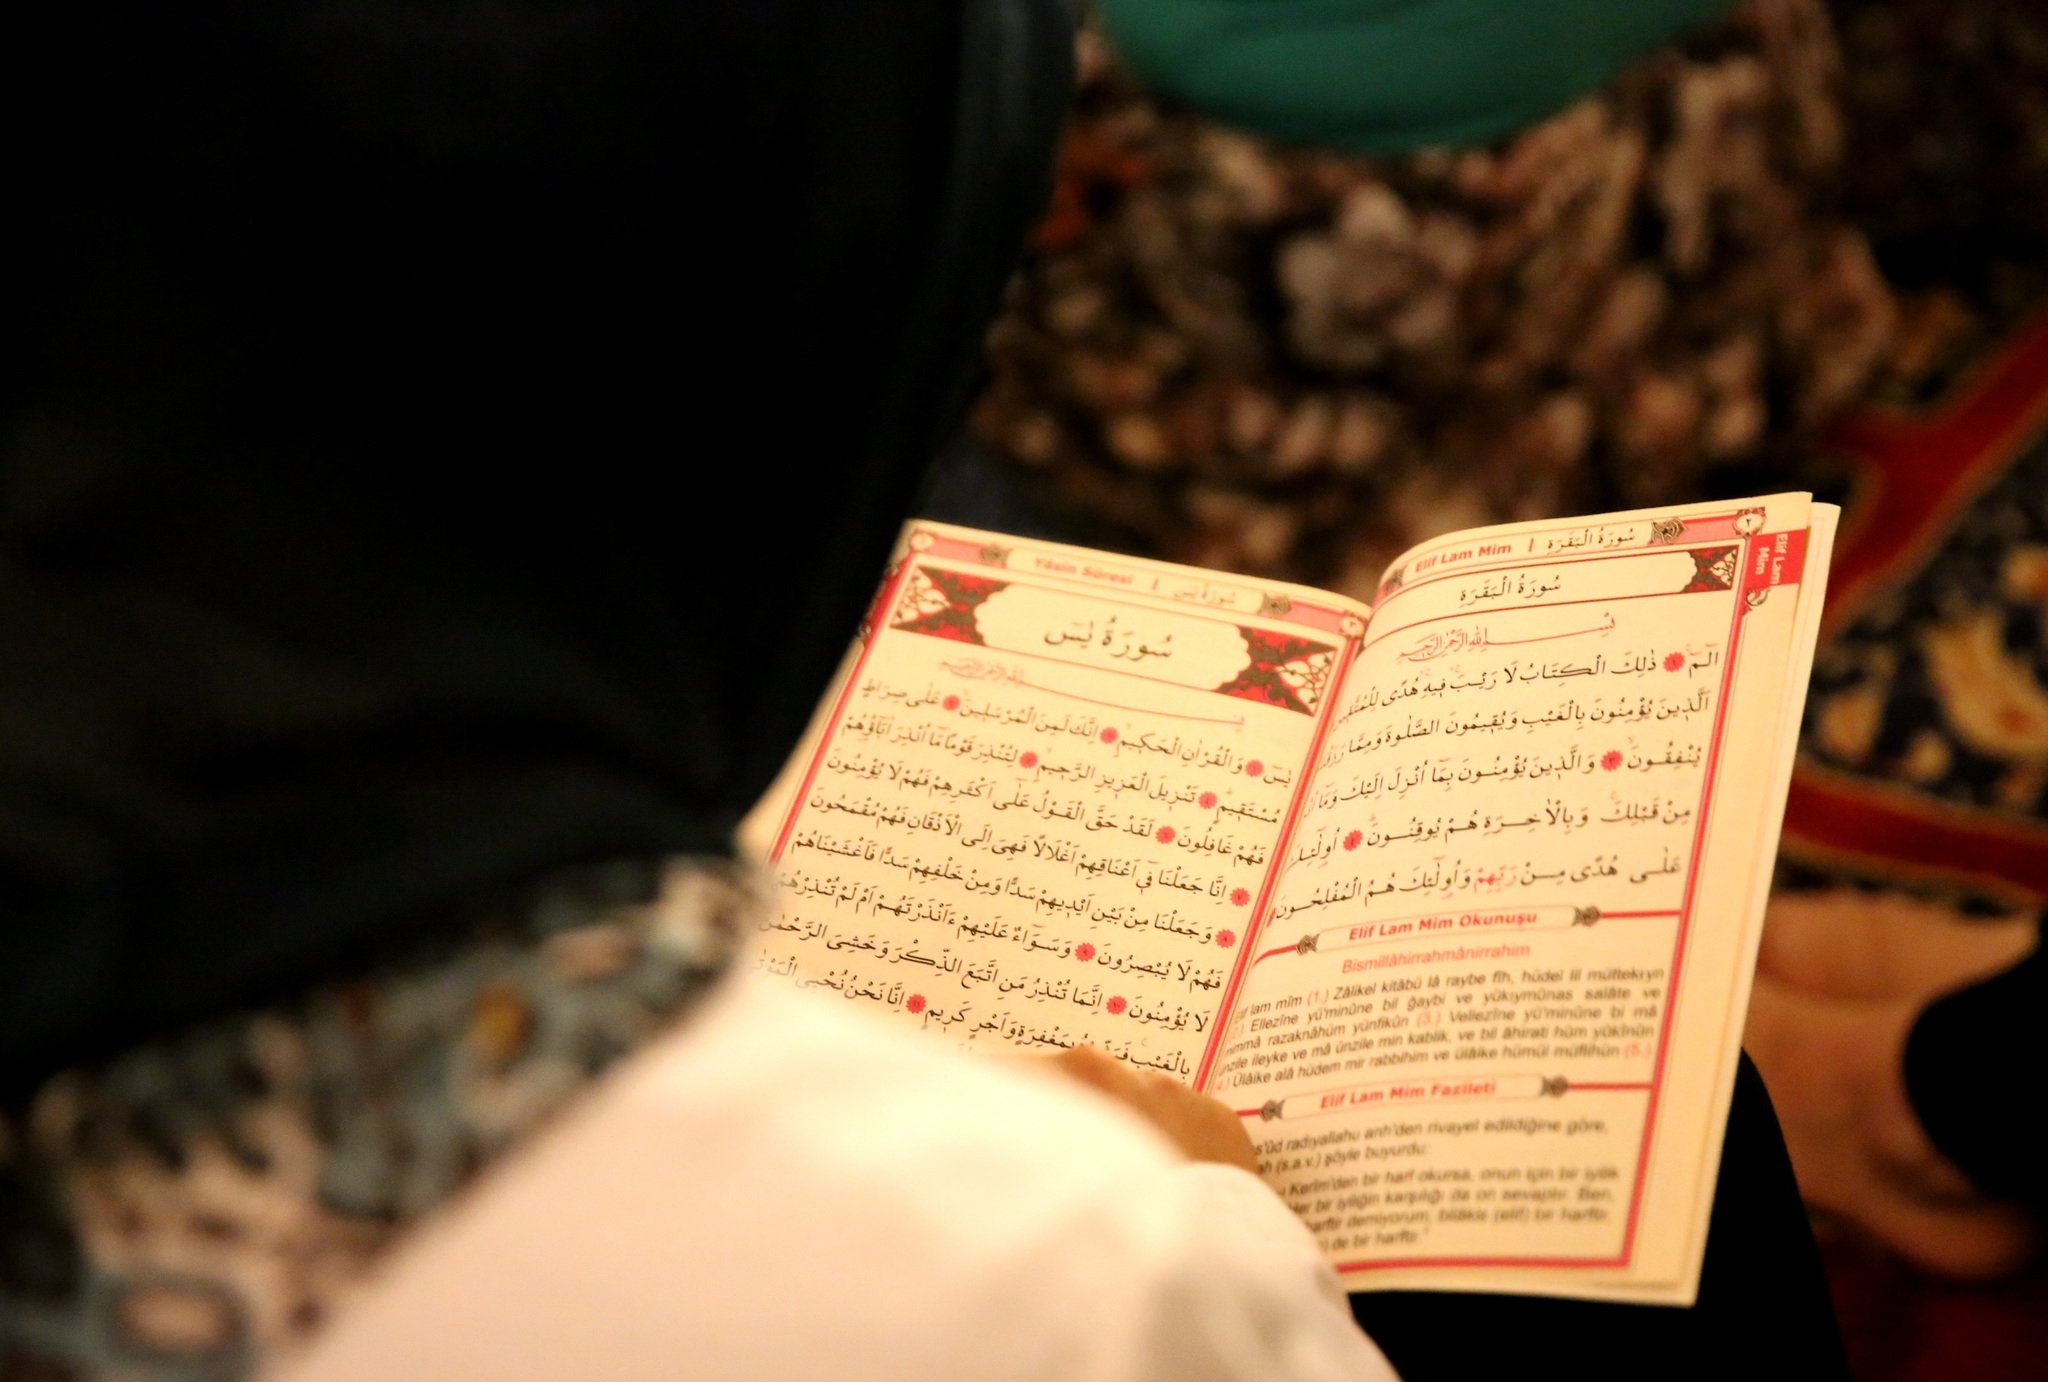 Elif Lam Mim | سُورَةُ الْبَقَرَةِ ٢
Elif Lam
Mim
سُورَةُ الْبَقَرَةِ
بِسْمِ اللهِ الرَّحْمٰنِ الرَّحِيمِ
الٓمٓ ۚ ١ ذٰلِكَ الْكِتَابُ لَا رَيْبَ ۚ ف۪يهِ ۚ هُدًى لِلْمُتَّق۪ينَ
اَلَّذ۪ينَ يُؤْمِنُونَ بِالْغَيْبِ وَيُق۪يمُونَ الصَّلٰوةَ وَمِمَّا رَزَقْنَاهُمْ
يُنْفِقُونَ ۙ ٣ وَالَّذ۪ينَ يُؤْمِنُونَ بِمَٓا اُنْزِلَ اِلَيْكَ وَمَٓا
مِنْ قَبْلِكَ ۚ وَبِالْاٰخِرَةِ هُمْ يُوقِنُونَ ۜ ٤ اُو۬لٰٓئِكَ
عَلٰى هُدًى مِنْ رَبِّهِمْ وَاُو۬لٰٓئِكَ هُمُ الْمُفْلِحُونَ
Elif Lam Mim Okunuşu
Bismillâhirrahmânirrahim
Elif lam mîm (1.) Zâlikel kitâbü lâ raybe fîh, hüdel lil müttekıyn
(2.) Ellezîne yü'minûne bil ğaybi ve yükıymûnas salâte ve
mimmâ razaknâhüm yünfikûn (3.) Vellezîne yü'minûne bi mâ
ünzile ileyke ve mâ ünzile min kablik, ve bil âhirati hüm yûkînûn
(4.) Ülâike alâ hüdem mir rabbihim ve ülâike hümül müflihûn (5.)
Elif Lam Mim Fazileti
s'ûd radıyallahu anh'den rivayet edildiğine göre,
(s.a.v.) şöyle buyurdu:
Kerîm'den bir harf okursa, onun için bir iyilik
Her bir iyiliğin karşılığı da on sevaptır. Ben,
harftir demiyorum, bilâkis (elif) bir harftir,
de bir harftir."
Yâsin Sûresi | سُورَةُ يٰسٓ ٣
سُورَةُ يٰسٓ
بِسْمِ اللهِ الرَّحْمٰنِ الرَّحِيمِ
يٰسٓ ١ وَالْقُرْاٰنِ الْحَك۪يمِ ۙ ٢ اِنَّكَ لَمِنَ الْمُرْسَل۪ينَ ۙ ٣ عَلٰى صِرَاطٍ
مُسْتَق۪يمٍ ۜ ٤ تَنْز۪يلَ الْعَز۪يزِ الرَّح۪يمِ ۙ ٥ لِتُنْذِرَ قَوْمًا مَٓا اُنْذِرَ اٰبَٓاؤُ۬هُمْ
فَهُمْ غَافِلُونَ ٦ لَقَدْ حَقَّ الْقَوْلُ عَلٰٓى اَكْثَرِهِمْ فَهُمْ لَا يُؤْمِنُونَ
٧ اِنَّا جَعَلْنَا ف۪ٓي اَعْنَاقِهِمْ اَغْلَالًا فَهِيَ اِلَى الْاَذْقَانِ فَهُمْ مُقْمَحُونَ
٨ وَجَعَلْنَا مِنْ بَيْنِ اَيْد۪يهِمْ سَدًّا وَمِنْ خَلْفِهِمْ سَدًّا فَاَغْشَيْنَاهُمْ
فَهُمْ لَا يُبْصِرُونَ ٩ وَسَوَٓاءٌ عَلَيْهِمْ ءَاَنْذَرْتَهُمْ اَمْ لَمْ تُنْذِرْهُمْ
لَا يُؤْمِنُونَ ١٠ اِنَّمَا تُنْذِرُ مَنِ اتَّبَعَ الذِّكْرَ وَخَشِيَ الرَّحْمٰنَ
بِالْغَيْبِ ۚ فَبَشِّرْهُ بِمَغْفِرَةٍ وَاَجْرٍ كَر۪يمٍ ١١ اِنَّا نَحْنُ نُحْيِي الْمَوْتٰى